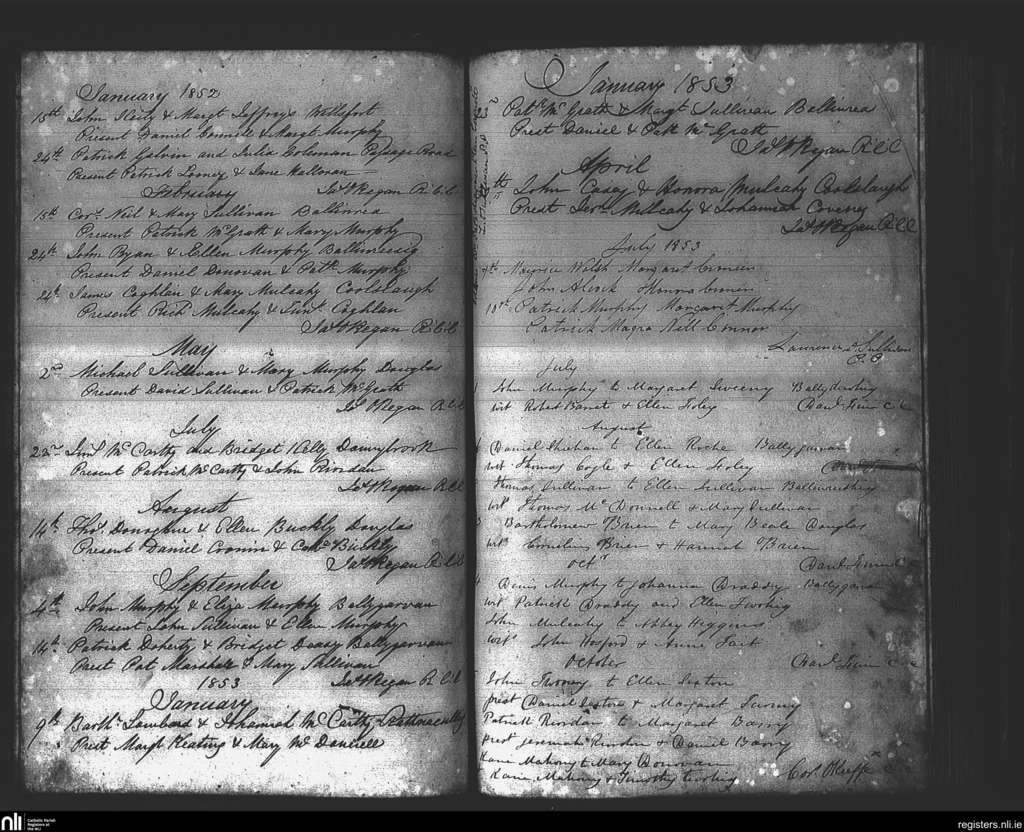 January 1852
15th John & Margt Jeffrey
Present Daniel Connell & Margt Murphy
24th Patrick Galvin and Julia Coleman Passage Road
Present Patrick Looney & Jane Halloran
February Jas O'Regan R.C.C
15th Cors Neil & Mary Sullivan Ballinrea
Present Patrick McGrath & Mary Murphy
24th John Ryan & Ellen Murphy
Present Daniel Donovan & Patk Murphy
24th James Coghlan & Mary Mulcahy Coolsleugh
Present Rich Mulcahy & Coghlan
Jas O'Regan R.C.C
May
2nd Michael Sullivan & Mary Murphy Douglas
Present David Sullivan & Patrick McGrath
Jas O'Regan R.C.C
July
22nd McCarthy and Bridget Kelly Donnybrook
Present Patrick McCarthy & John Riordan
Jas O'Regan R.C.C
August
14th Thos Donoghue & Ellen Buckly Douglas
Present Daniel Cronin & Buckly
Jas O'Regan R.C.C
September
4th John Murphy & Eliza Murphy Ballygarvan
Present John Sullivan & Ellen Murphy
14th Patrick Doherty & Bridget Deasy Ballygarvan
Prest Pat Marshall & Mary Sullivan
1853 Jas O'Regan R.C.C
January
9th Barthw Lombard & Johannah McCarthy
Prest Margt Keating & Mary McDonnell
January 1853
Patk McGrath & Margt Sullivan Ballinrea
Prest Daniel & Patk McGrath
Jas O'Regan R.C.C
April
th John Casey & Honora Mulcahy Coolsleugh
Prest Mulcahy & Johannah Coveney
Jas O'Regan R.C.C
July 1853
th Maurice Walsh Margaret Cronin
John Honora Cronin
18th Patrick Murphy Margaret Murphy
Patrick Magra Nell Connor
Lawrence O'Sullivan
P.P.
July
John Murphy to Margaret Sweeny
wit Robert Barrett & Ellen Foley
August
Daniel Sheehan to Ellen Roche Ballygarvan
wit Thomas Coyle & Ellen Foley
Thomas Sullivan to Ellen Sullivan
wit Thomas McDonnell & Mary Sullivan
Bartholomew Brien to Mary Beale Douglas
wit Cornelius Brien & Hannah O'Brien
Octr
Denis Murphy to Johanna Draddy Ballygarvan
wit Patrick Draddy and Ellen Twohig
John Mulcahy to Abbey Higgins
wit John Hosford & Anne Tait
October
John Twomey to Ellen Sexton
prest Daniel Sexton & Margaret Twomey
Patrick Riordan to Margaret Barry
prest Jeremiah Riordan & Daniel Barry
Mahony to Mary Donovan
Mahony & Timothy Twohig Cor. O'Keeffe
nli
Catholic Parish
Registers at
the NLI
registers.nli.ie